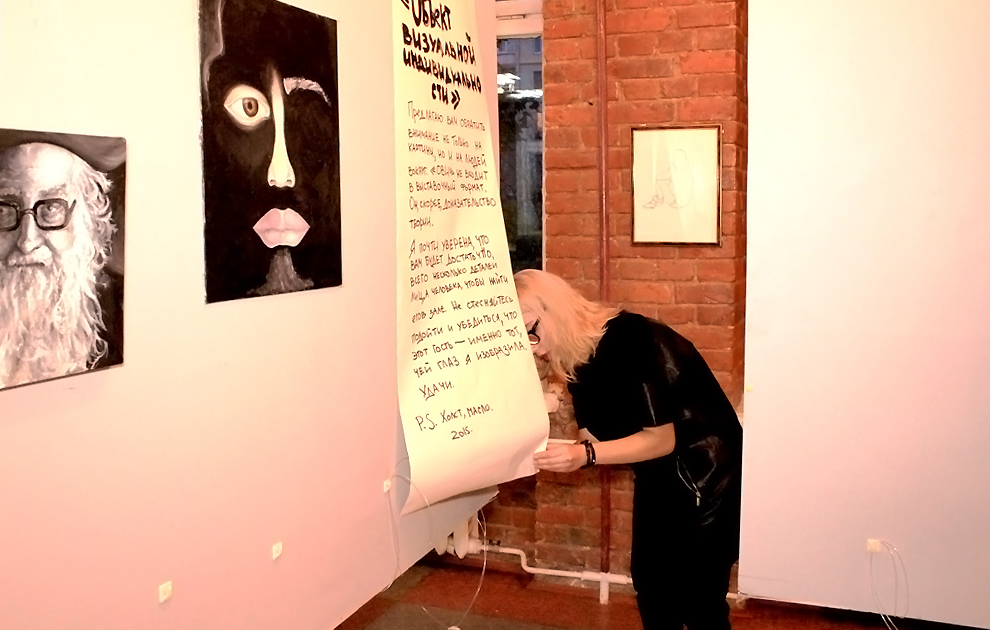 «Объект
визуальной
индивидуально
сти»
Предлагаю вам обратить
внимание не только на
картины, но и на людей
вокруг. не входит
в выставочный формат.
Он, скорее, доказательство
теории.
Я почти уверена, что
вам будет достаточно,
всего несколько деталей
лица человека, чтобы найти
его в зале. Не стесняйтесь
подойти и убедиться, что
этот гость — именно тот,
чей глаз я изобразила.
Удачи.
P.S. Холст, масло.
2015.